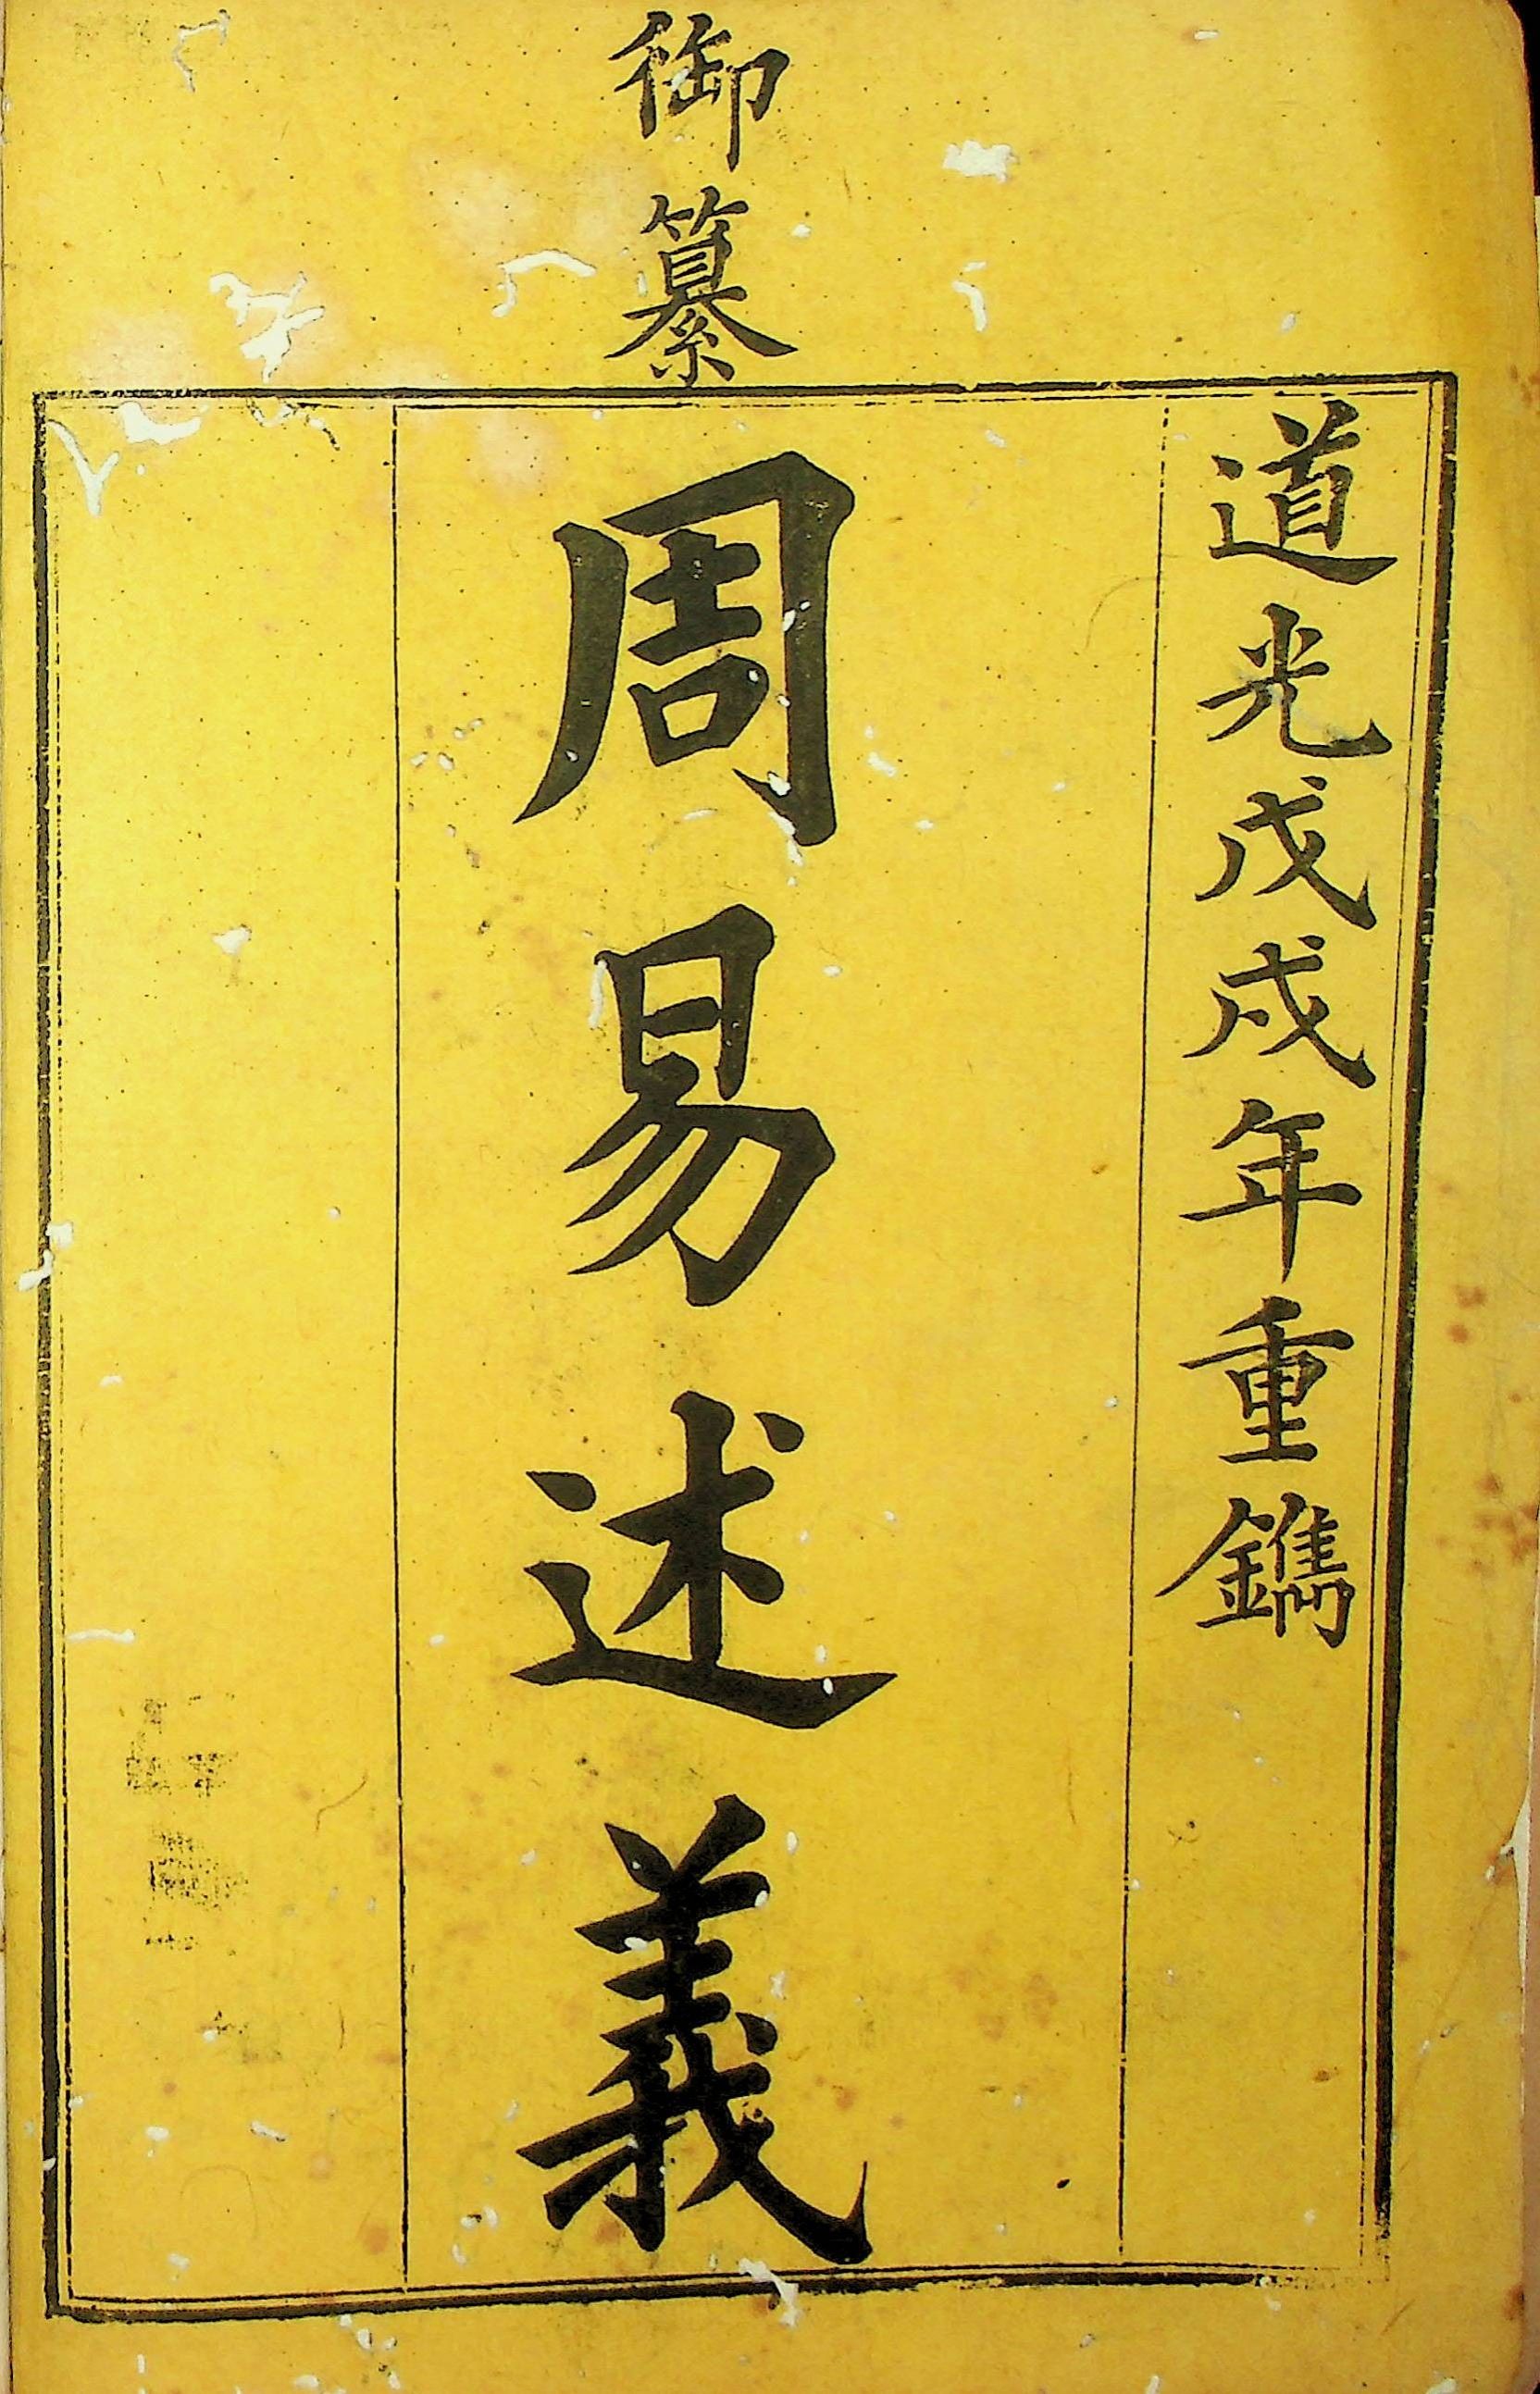 道光戊戌年重鐫
御纂
周易述義